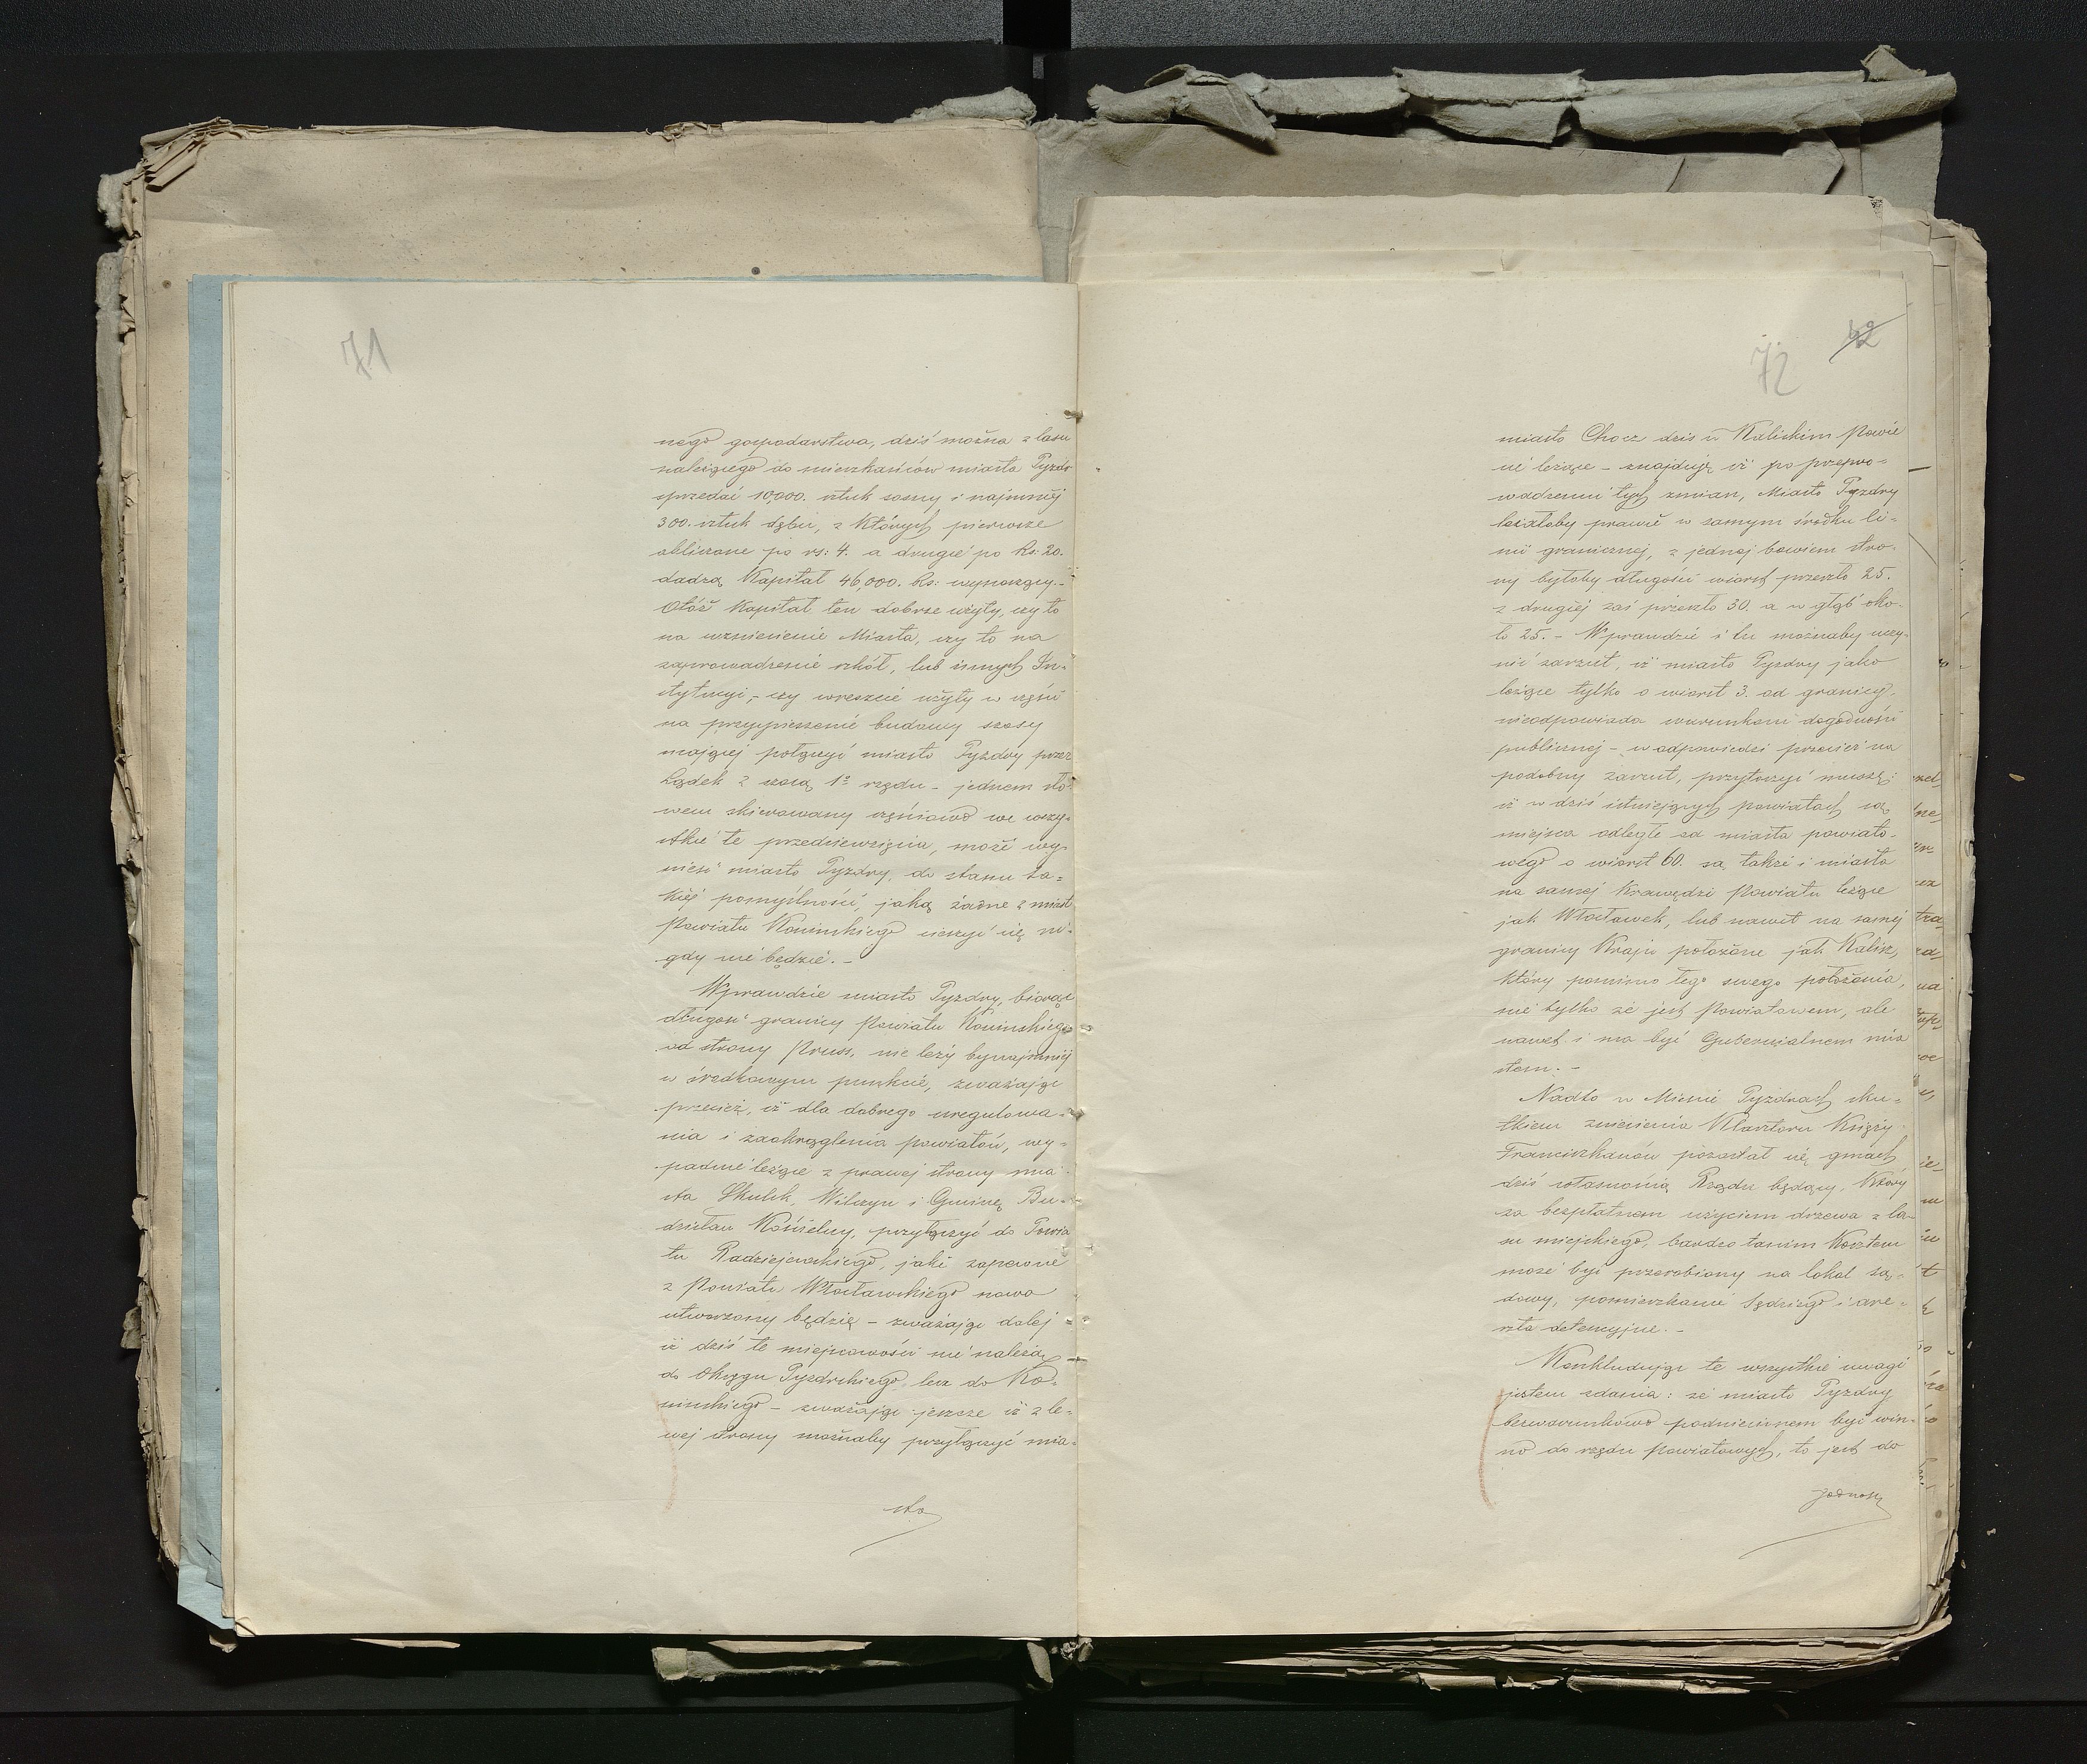 71
nego gospodarstwa, dziś można z lasu
należącego do mieszkańców miasta Pyzdr
sprzedać 10,000. sztuk sosny i najmniéj
300. sztuk dębu, z których pierwsze
obliczone po rs: 4. a drugie po Rs: 20.
dadzą Kapitał 46,000. Rs: wynoszący. -
Otóż Kapitał ten dobrze użyty, czy to
na wzniesienie Miasta, czy to na
zaprowadzenie szkół, lub innych In=
stytucyi, - czy wreszcie użyty w części
na przyspieszenie budowy szosy
mającéj połączyć miasto Pyzdry przez
Lądek z szosą 1º rzędu - jednem sło=
wem skierowany częściowo we wszy=
stkie te przedsiewzięcia, może wy=
nieść miasto Pyzdry, do stanu ta=
kiéj pomyślności, jaką żadne z miast
Powiatu Konińskiego cieszyć się ni=
gdy nie będzie. -
Wprawdzie miasto Pyzdry, biorąc
długość granicy Powiatu Konińskiego
od strony Pruss, nie leży bynajmniéj
w środkowym punkcie, zważając
przecież, iż dla dobrego uregulowa=
nia i zaokrąglenia powiatów, wy=
padnie leżące z prawej strony mia=
sta Skulsk, Wilczyn i Gminę Bu=
dzisław Kościelny, przyłączyć do Powia
tu Radziejewskiego, jaki zapewne
z Powiatu Włocławskiego nowo
utworzony będzie - zważając dalej
iż dziś te miejscowości nie należą
do Okręgu Pyzdrskiego, lecz do Ko=
nińskiego - zważając jeszcze iż z le=
wej strony możnaby przyłączyć mia=
sto
42
72
miasto Chocz dziś w Kaliskim Powie
cie leżące - znajduję iż po przepro=
wadzeniu tych zmian, Miasto Pyzdry
leżałoby prawie w samym środku li=
nii granicznej, z jednej bowiem stro=
ny byłoby długości wiorst przeszło 25.
z drugiéj zaś przeszło 30. a w głąb oko=
ło 25. - Wprawdzie i tu możnaby uczy=
nić zarzut, iż miasto Pyzdry jako
leżące tylko o wiorst 3. od granicy,
nieodpowiada warunkom dogodności
publicznej - w odpowiedzi przecież na
podobny zarzut, przytoczyć muszę:
iż w dziś istniejących powiatach są
miejsca odległe od miasta powiato=
wego o wiorst 60. są także i miasta
na samej Krawędzi Powiatu leżące
jak Włocławek, lub nawet na samej
granicy Kraju położone jak Kalisz,
który pomimo tego swego położenia,
nie tylko że jest Powiatowem, ale
nawet i ma być Gubernialnem mia
stem. -
Nadto w Mieście Pyzdrach sku=
tkiem zniesienia Klasztoru Księży
Franciszkanów pozostał się gmach
dziś własnością Rządu będący, Który
za bezpłatnem użyciem drzewa z la=
su miejskiego, bardzo tanim Kosztem
może być przerobiony na lokal są=
dowy, pomieszkanie Sędziego i are=
szta detencyjne. -
Konkludując te wszystkie uwagi
jestem zdania: że miasto Pyzdry
bezwarunkowo podniesionem być win=
no do rzędu powiatowych, to jest do
jednosty